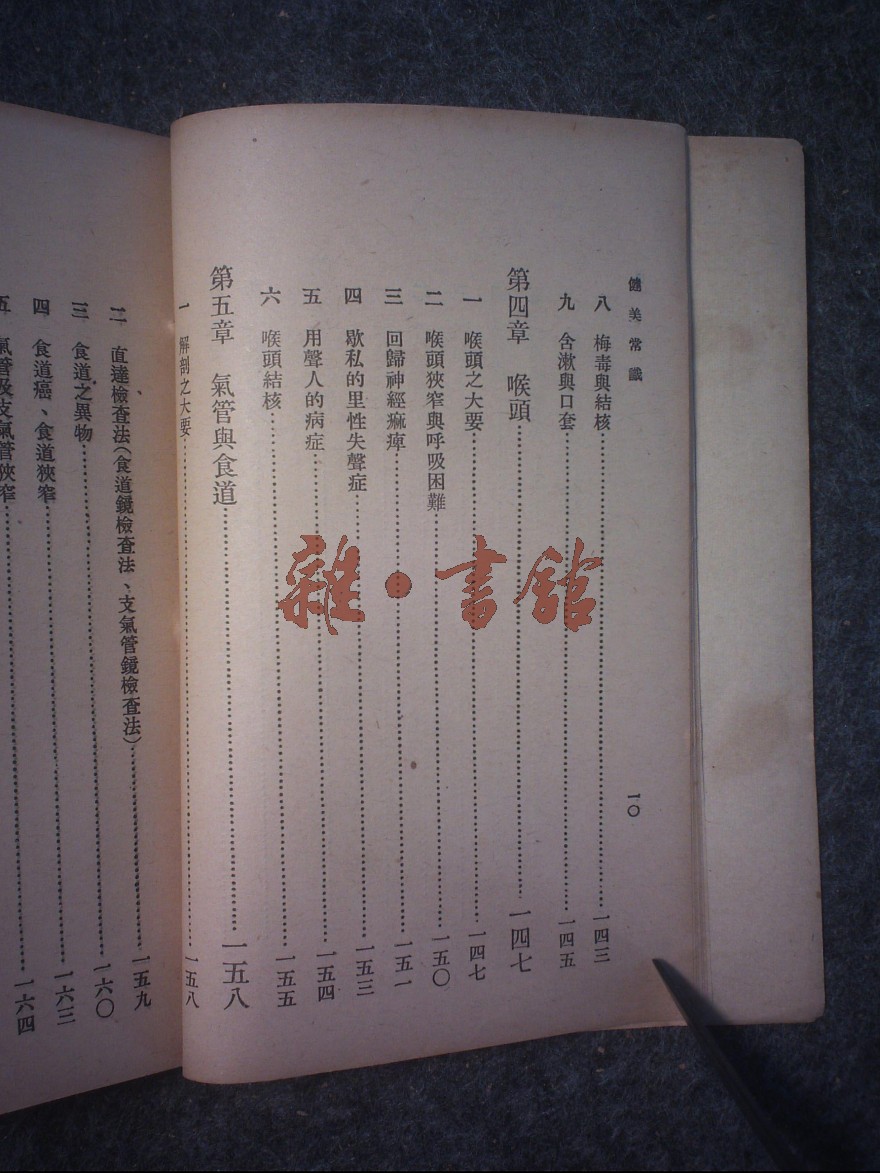 健美常識
一〇
八 梅毒與結核…………一四三
九 含漱與口套…………一四五
第四章 喉頭…………一四七
一 喉頭之大要…………一四七
二 喉頭狹窄與呼吸困難…………一五〇
三 回歸神經痲痺…………一五一
四 歇私的里性失聲症…………一五三
五 用聲人的病症…………一五四
六 喉頭結核…………一五五
第五章 氣管與食道…………一五八
一 解剖之大要…………一五八
二 直達檢查法(食道鏡檢查法、支氣管鏡檢查法)…………一五九
三 食道之異物…………一六〇
四 食道癌、食道狹窄…………一六三
五 氣管及支氣管狹窄…………一六四
雜·書館